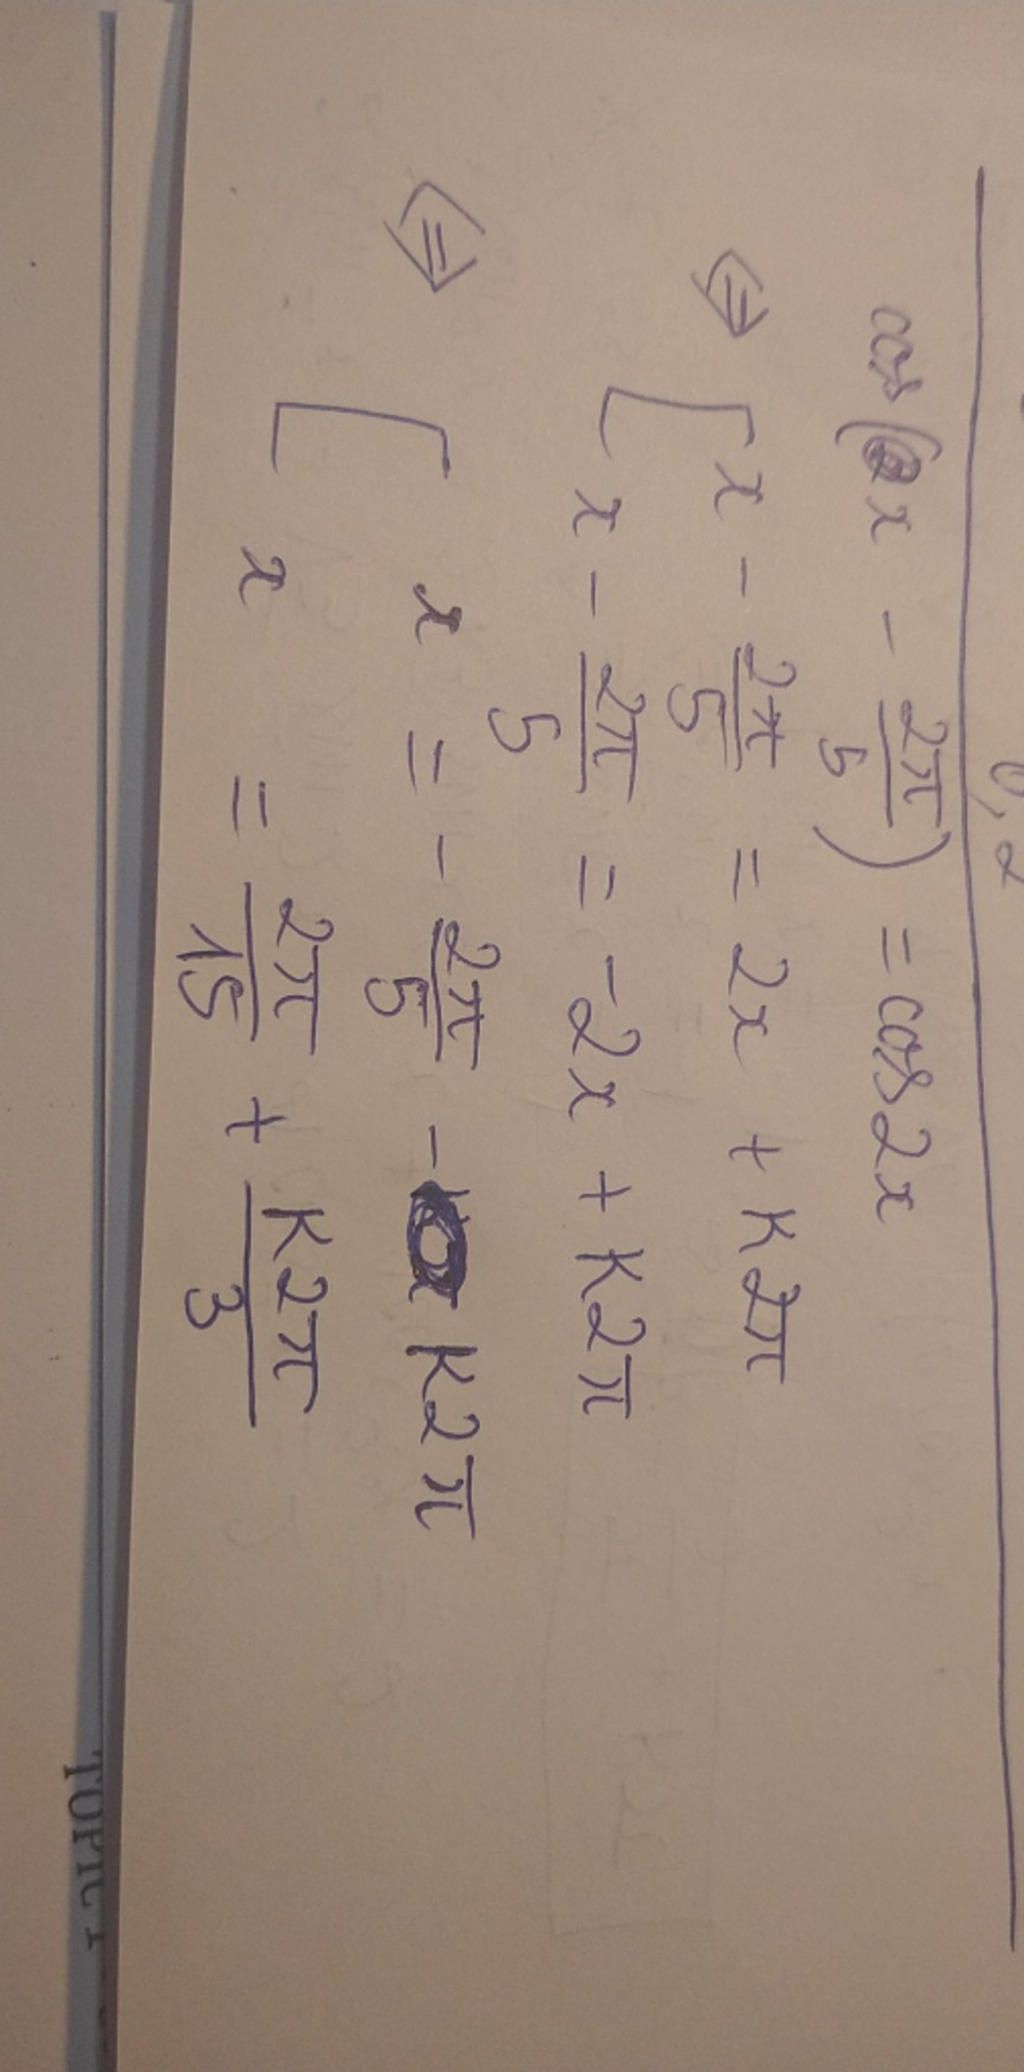 0,2
cos(x - 2π/5) = cos2x
⇔ [ x - 2π/5 = 2x + K2π
x - 2π/5 = -2x + K2π
⇔ [ x = - 2π/5 - K2π
x = 2π/15 + K2π/3
TOPIC 1